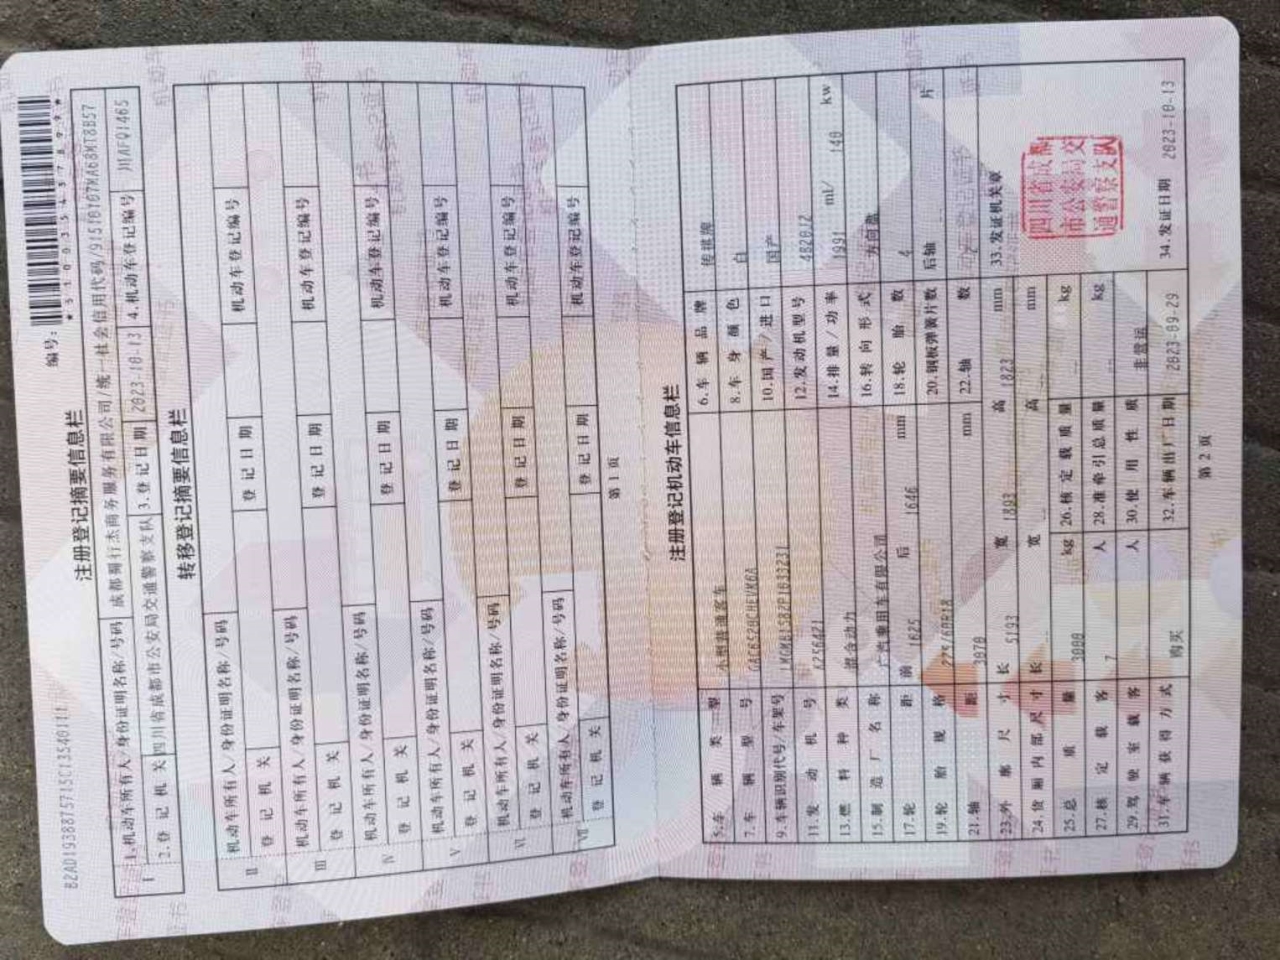 编号：
*510035457899*
B2AD1938875715C1354011
注册登记摘要信息栏
Ⅰ 1.机动车所有人/身份证明名称/号码 成都蜀行杰商务服务有限公司/统一社会信用代码/91510107MA68KT8B57
2.登记机关 四川省成都市公安局交通警察支队 3.登记日期 2023-10-13 4.机动车登记编号 川AFQ1465
转移登记摘要信息栏
Ⅱ 机动车所有人/身份证明名称/号码
登记机关 登记日期 机动车登记编号
Ⅲ 机动车所有人/身份证明名称/号码
登记机关 登记日期 机动车登记编号
Ⅳ 机动车所有人/身份证明名称/号码
登记机关 登记日期 机动车登记编号
Ⅴ 机动车所有人/身份证明名称/号码
登记机关 登记日期 机动车登记编号
Ⅵ 机动车所有人/身份证明名称/号码
登记机关 登记日期 机动车登记编号
Ⅶ 机动车所有人/身份证明名称/号码
登记机关 登记日期 机动车登记编号
第1页
注册登记机动车信息栏
5.车辆类型 小型普通客车 6.车辆品牌 传祺牌
7.车辆型号 GAC6520CHEVK6A 8.车身颜色 白
9.车辆识别代号/车架号 10.国产/进口 国产
11.发动机号 6256421 12.发动机型号 4B20J2
13.燃料种类 混合动力 14.排量/功率 1991 ml/ 140 kw
15.制造厂名称 广汽乘用车有限公司 16.转向形式 方向盘
17.轮距 前 1625 后 1646 mm 18.轮胎数 4
19.轮胎规格 225/60R18 20.钢板弹簧片数 后轴 片
21.轴距 3070 mm 22.轴数 2
23.外廓尺寸 长 5193 宽 1893 高 1823 mm 33.发证机关章
24.货厢内部尺寸 长 -- 宽 -- 高 -- mm
25.总质量 3000 kg 26.核定载质量 -- kg
27.核定载客 7 人 28.准牵引总质量 -- kg
29.驾驶室载客 人 30.使用性质 非营运
31.车辆获得方式 购买 32.车辆出厂日期 2023-09-29 34.发证日期 2023-10-13
四川省成都
市公安局交
通警察支队
第2页